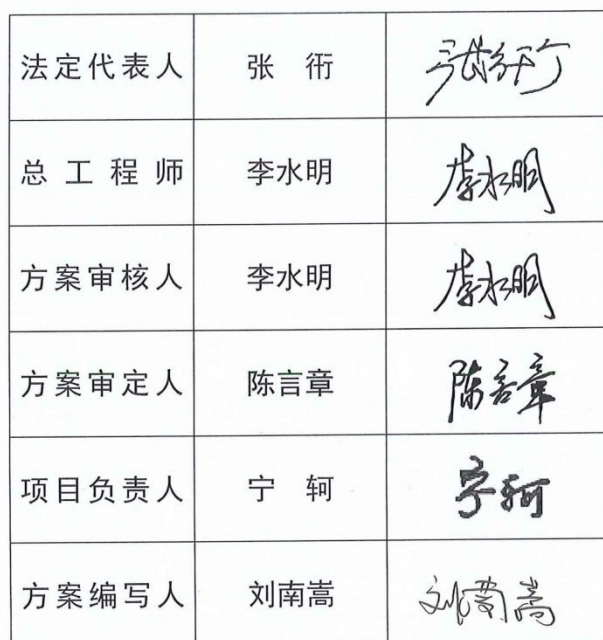 法定代表人 张 衎 张衎
总工程师 李水明 李水明
方案审核人 李水明 李水明
方案审定人 陈言章 陈言章
项目负责人 宁 轲 宁轲
方案编写人 刘南嵩 刘南嵩